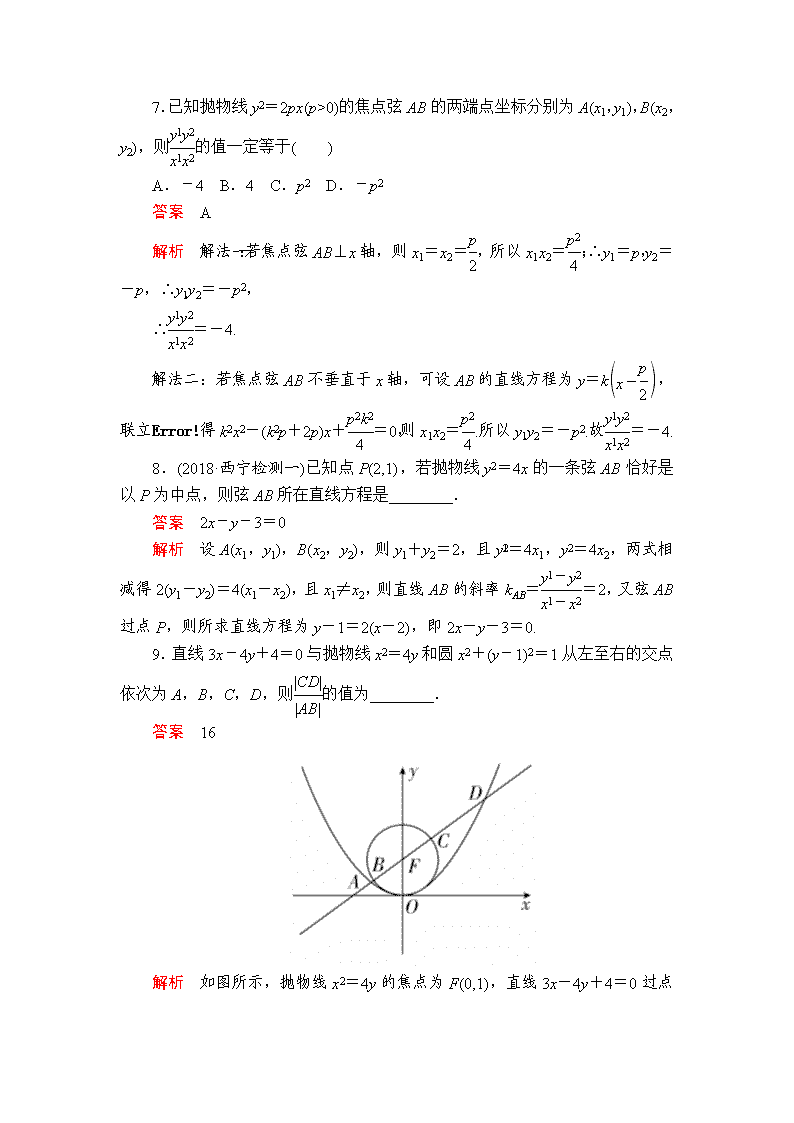 7.已知抛物线 y2=2px(p>0)的焦点弦 AB 的两端点坐标分别为 A(x1,y1),B(x2,
y2),则y1y2/x1x2的值一定等于(  )
A.-4 B.4 C.p2 D.-p2
答案 A
解析 解法一:若焦点弦 AB⊥x 轴,则 x1=x2=p/2,所以 x1x2=p2/4;∴y1=p,y2=
-p,∴y1y2=-p2,
∴y1y2/x1x2=-4.
解法二:若焦点弦 AB 不垂直于 x 轴,可设 AB 的直线方程为 y=k(x-p/2),
联立Error!得 k2x2-(k2p+2p)x+p2k2/4=0,则 x1x2=p2/4.所以 y1y2=-p2.故y1y2/x1x2=-4.
8.(2018·西宁检测一)已知点 P(2,1),若抛物线 y2=4x 的一条弦 AB 恰好是
以 P 为中点,则弦 AB 所在直线方程是________.
答案 2x-y-3=0
解析 设 A(x1,y1),B(x2,y2),则 y1+y2=2,且 y21=4x1,y2=4x2,两式相
减得 2(y1-y2)=4(x1-x2),且 x1≠x2,则直线 AB 的斜率 kAB=y1-y2/x1-x2=2,又弦 AB
过点 P,则所求直线方程为 y-1=2(x-2),即 2x-y-3=0.
9.直线 3x-4y+4=0 与抛物线 x2=4y 和圆 x2+(y-1)2=1 从左至右的交点
依次为 A,B,C,D,则|CD|/|AB|的值为________.
答案 16
y
D
C
B F
A
O x
解析 如图所示,抛物线 x2=4y 的焦点为 F(0,1),直线 3x-4y+4=0 过点